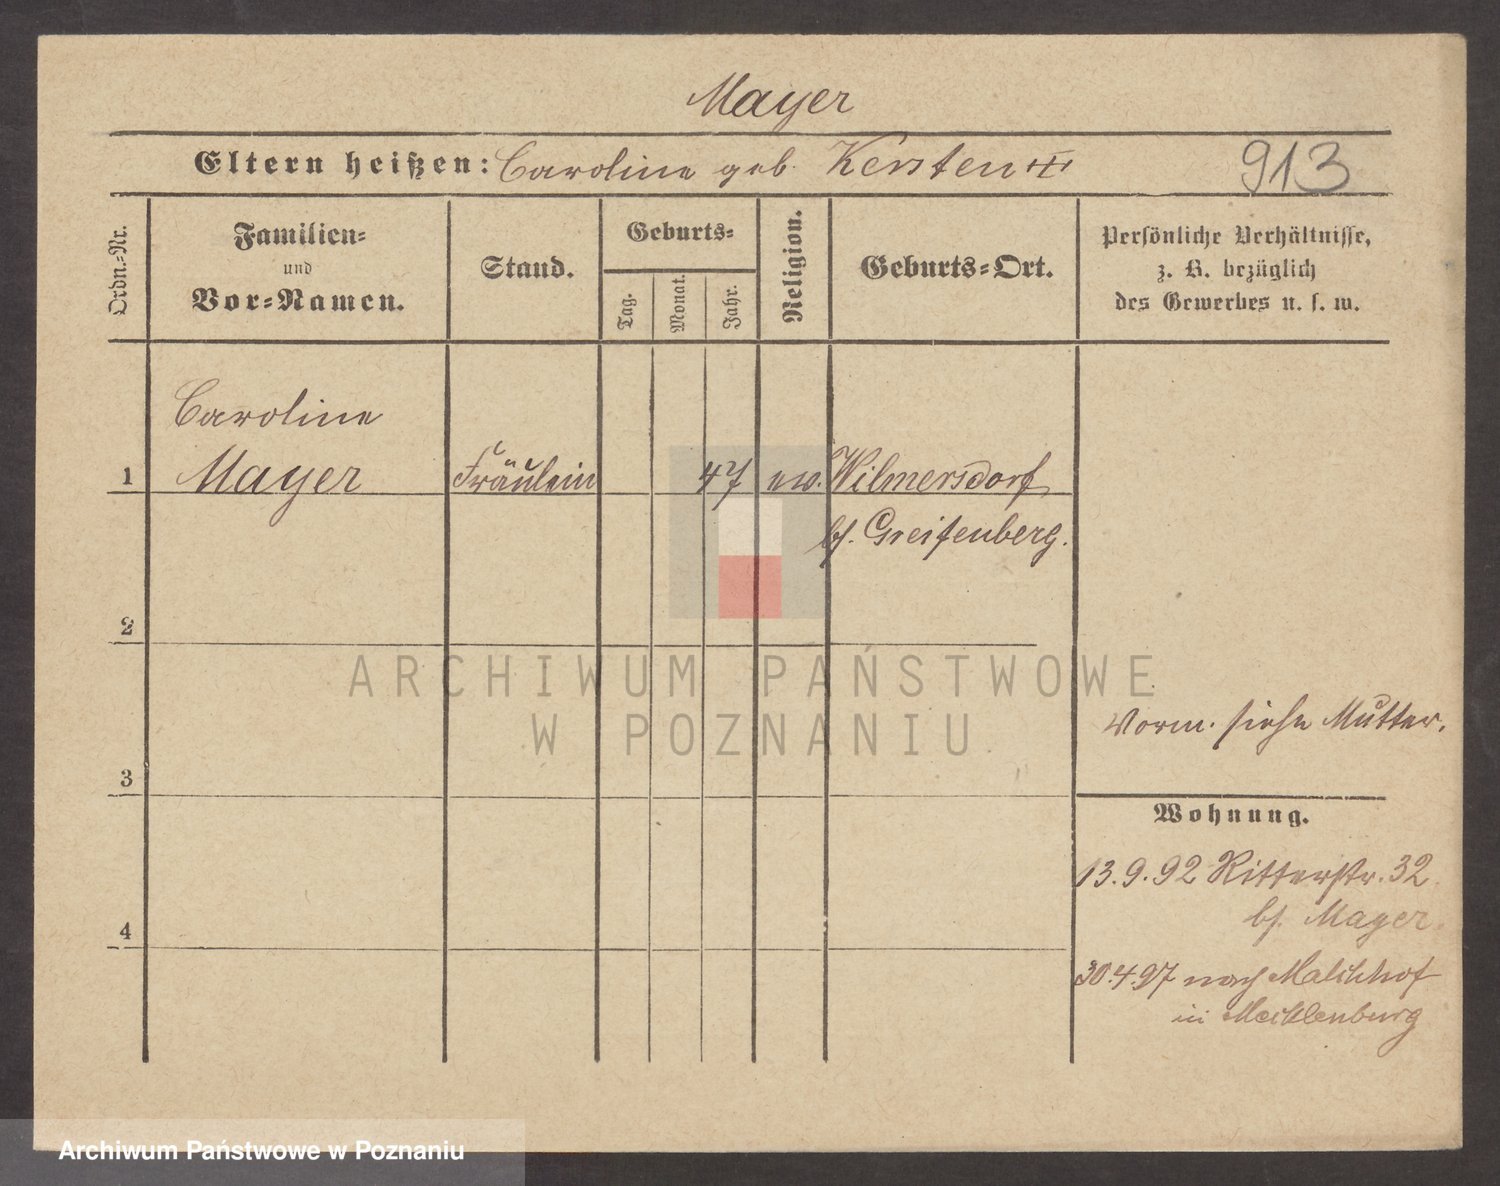 Mayer
Eltern heißen: Caroline geb. Kersten
913
Ordn.-Nr.
Familien-
und
Vor-Namen.
Stand.
Geburts-
Tag.
Monat.
Jahr.
Religion.
Geburts-Ort.
Persönliche Verhältnisse,
z. B. bezüglich
des Gewerbes u. s. w.
Caroline
1 Mayer Fräulein 47 ev. Wilmersdorf
b/. Greifenberg.
2
ARCHIWUM PAŃSTWOWE
W POZNANIU
Vorm. siehe Mutter.
3
Wohnung.
13.9.92 Ritterstr. 32
b/. Mayer.
4
30.4.97 nach Malchhof
in Mecklenburg
Archiwum Państwowe w Poznaniu